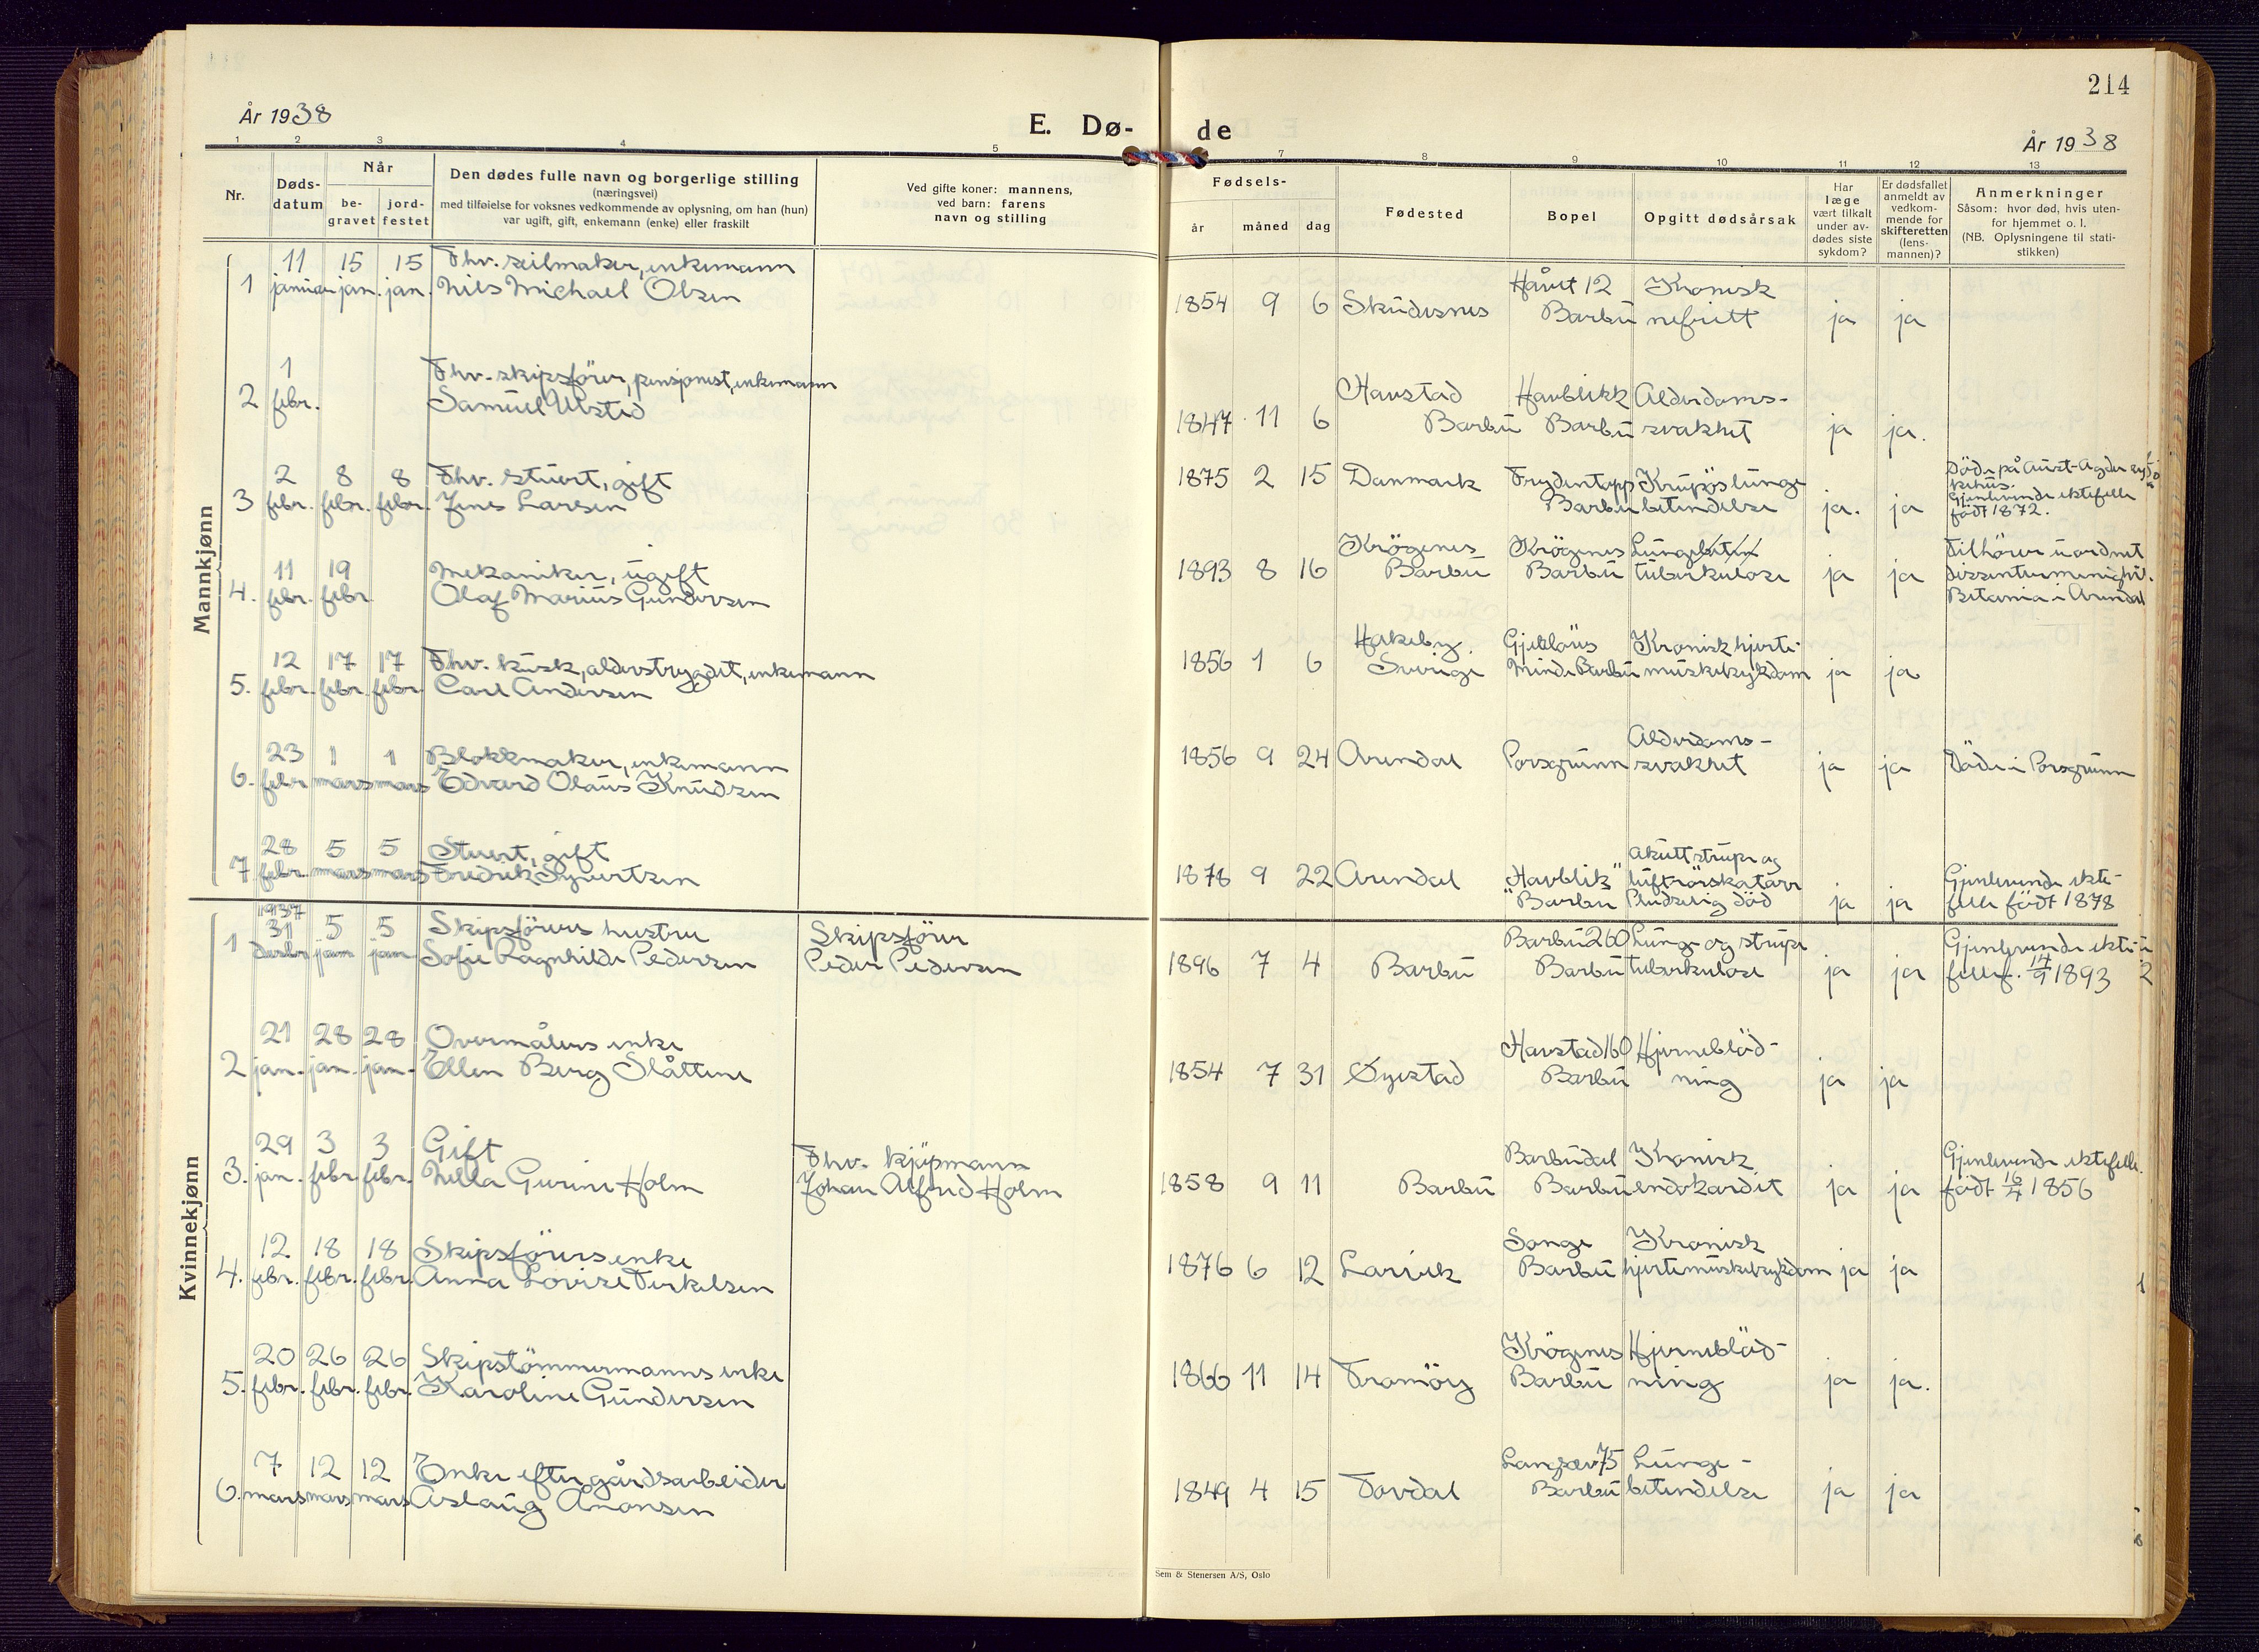 214
År 1938
E. Dø-
de
År 1938
1 2 3 4 5 7 8 9 10 11 12 13
Nr.
Døds-
datum
Når
be-
gravet
jord-
festet
Den dødes fulle navn og borgerlige stilling
(næringsvei)
med tilføielse for voksnes vedkommende av oplysning, om han (hun)
var ugift, gift, enkemann (enke) eller fraskilt
Ved gifte koner: mannens,
ved barn: farens
navn og stilling
Fødsels-
år måned dag
Fødested
Bopel
Opgitt dødsårsak
Har
læge
vært tilkalt
under av-
dødes siste
sykdom?
Er dødsfallet
anmeldt av
vedkom-
mende for
skifteretten
(lens-
mannen)?
Anmerkninger
Såsom: hvor død, hvis uten-
for hjemmet o. l.
(NB. Oplysningene til stati-
stikken)
Mannkjønn
11 15 15 Fhv. seilmaker, enkemann
1 januar jan. jan. Nils Michael Olsen
Håvet 12 Kronisk
1854 9 6 Skudesnes Barbu nefritt ja ja
1 Fhv. skipsfører, pensjonist, enkemann
2 febr. Samuel Ulsted
Havstad Havblikk Alderdoms-
1847 11 6 Barbu Barbu svakhet ja ja.
2 8 8 Fhv. stuert, gift
3 febr. febr. febr. Jens Larsen
1875 2 15 Danmark Frydentopp Krupøs lunge
Barbu betendelse ja. ja
Døde på Aust-Agder sy-
kehus.
Gjenlevende ektefelle
født 1872.
11 19 Mekaniker, ugift
4. febr. febr. Olaf Marius Gundersen
Krøgenes Krøgenes Lunge
1893 8 16 Barbu Barbu tuberkulose ja ja
Tilhører uordnet
dissentermenighet.
Betania i Arendal
12 17 17 Fhv. kusk, alderstrygdet, enkemann
5. febr. febr. febr. Carl Andersen
Gjekløus Kronisk hjerte-
1856 1 6 Sverige Minde Barbu muskelsykdom ja ja
23 1 1 Blokkmaker, enkemann
6. febr mars mars Edvard Olaus Knudsen
Alderdoms-
1856 9 24 Arendal Porsgrunn svakhet ja ja Døde i Porsgrunn
28 5 5 Stuert, gift
7 febr. mars mars Fredrik Syvertsen
Akutt strupe og
1878 9 22 Arendal "Havblik" luftrørskatarr
Barbu Pludselig død ja ja
Gjenlevende ekte-
felle født 1878
Kvinnekjønn
1937
31 5 5 Skipsførers hustru Skipsfører
1 desbr jan jan Sofie Ragnhilde Pedersen Peder Pedersen
Barbu 260 Lunge og strupe
1896 7 4 Barbu Barbu tuberkulose ja ja
Gjenlevende ekte-
felle f. 14/9 1893
21 28 28 Overmålers enke
2 jan. jan. jan. Ellen Berg Slåttene
Havstad 160 Hjerneblød-
1854 7 31 Øyestad Barbu ning ja ja
29 3 3 Gift Fhv. kjøpmann
3. jan. febr. febr. Nella Gurine Holm Johan Alfred Holm
Barbudal Kronisk
1858 9 11 Barbu Barbu endokardit ja ja
Gjenlevende ektefelle.
født 16/4 1856
12 18 18 Skipsførers enke
4. febr. febr. febr. Anna Lovise Terkelsen
Songe Kronisk
1876 6 12 Larvik Barbu hjertemuskelsykdom ja ja
20 26 26 Skipstømmermanns enke
5. febr. febr. febr. Karoline Gundersen
Krøgenes Hjerneblød-
1866 11 14 Tromøy Barbu ning ja ja.
7 12 12 Enke efter gårdsarbeider
6. mars mars mars Aslaug Ånonsen
Langsæv 75 Lunge-
1849 4 15 Tovdal Barbu betendelse ja ja
Sem & Stenersen A/S, Oslo